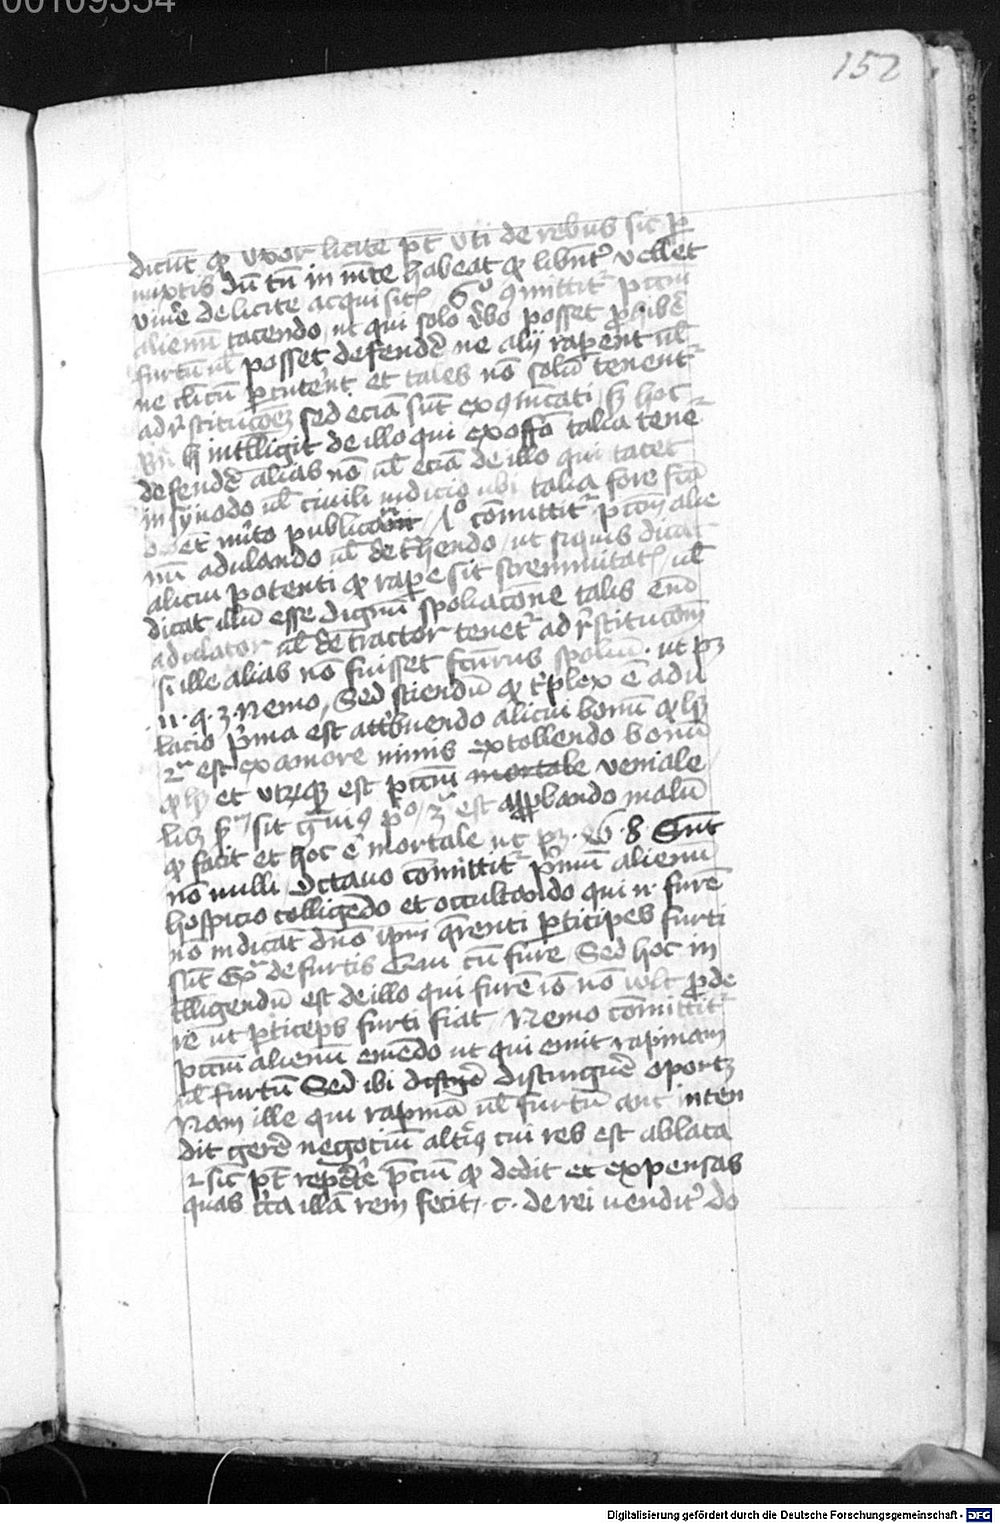 00109354
152
dicūt qđ uxor licite pōt uti de rebus sic
nuptis dū tn̄ in mēte habeat qđ libēnt' vellet
vivē de licite acquisitis 6° ꝯmittit' pctm̄
alienū tacendo ut qui solo v̄bo posset ꝓhibē
furtū ul' posset defendē ne alij raperent ul'
ne clicū ꝑcuterēt et tales nō solū tenent'
ad r̄stitucōem sed eciā sūt excōīcati sʒ hoc
intelligit de illo qui ex offō talia tene'
defendē alias nō ul' eciā de illo qui tacet
in synodo ul' civili iudicio ubi talia fore
et m̄ito publicāri 7° cōmittit' pctm̄ alie
nū adulando ul' det'hendo ut siquis dicat
alicui potenti qđ rape sit strennuitatis ul'
dicat illū esse dignū spoliacōne talis
adulator ul' detractor tenet' ad r̄stitucōem
si ille alias nō fuisset fcturus spoliū. ut pʒ
11. q. 3. Nemo, Sed sciendū qđ t'plex ē adu
lacio p̄ma est att'buendo alicui bonū qđ
2ª est ex amore nimis extollendo bonū
et utrūqʒ est pctm̄ mortale veniale
licʒ sit g̃viꝯ p° 3ª est appbando malū
qđ facit et hoc ē mortale ut pʒ. 8 Sunt
nō nulli Octavo cōmittit' alienū
hospicio colligēdo et occultando qui n̄ furē
nō indicāt dn̄o q̄renti ꝑticipes furti
sūt de furtis Qui cū fure Sed hoc in
tlligendū est de illo qui furē iō nō vult ꝓde
re ut ꝑticeps furti fiat Nemo cōmittit'
pctm̄ alienū emēdo ut qui emit rapinam
ul' furtū Sed ibi distīgē distinguē oportʒ
Nam ille qui rapinā ul' furtū emit inten
dit gerē negociū alt'iꝯ cui res est ablata
et sic pōt repetē p̄ciū qđ dedit et expensas
quas c̄ca illā rem fecit. c. de rei vendit' do
Digitalisierung gefördert durch die Deutsche Forschungsgemeinschaft - DFG